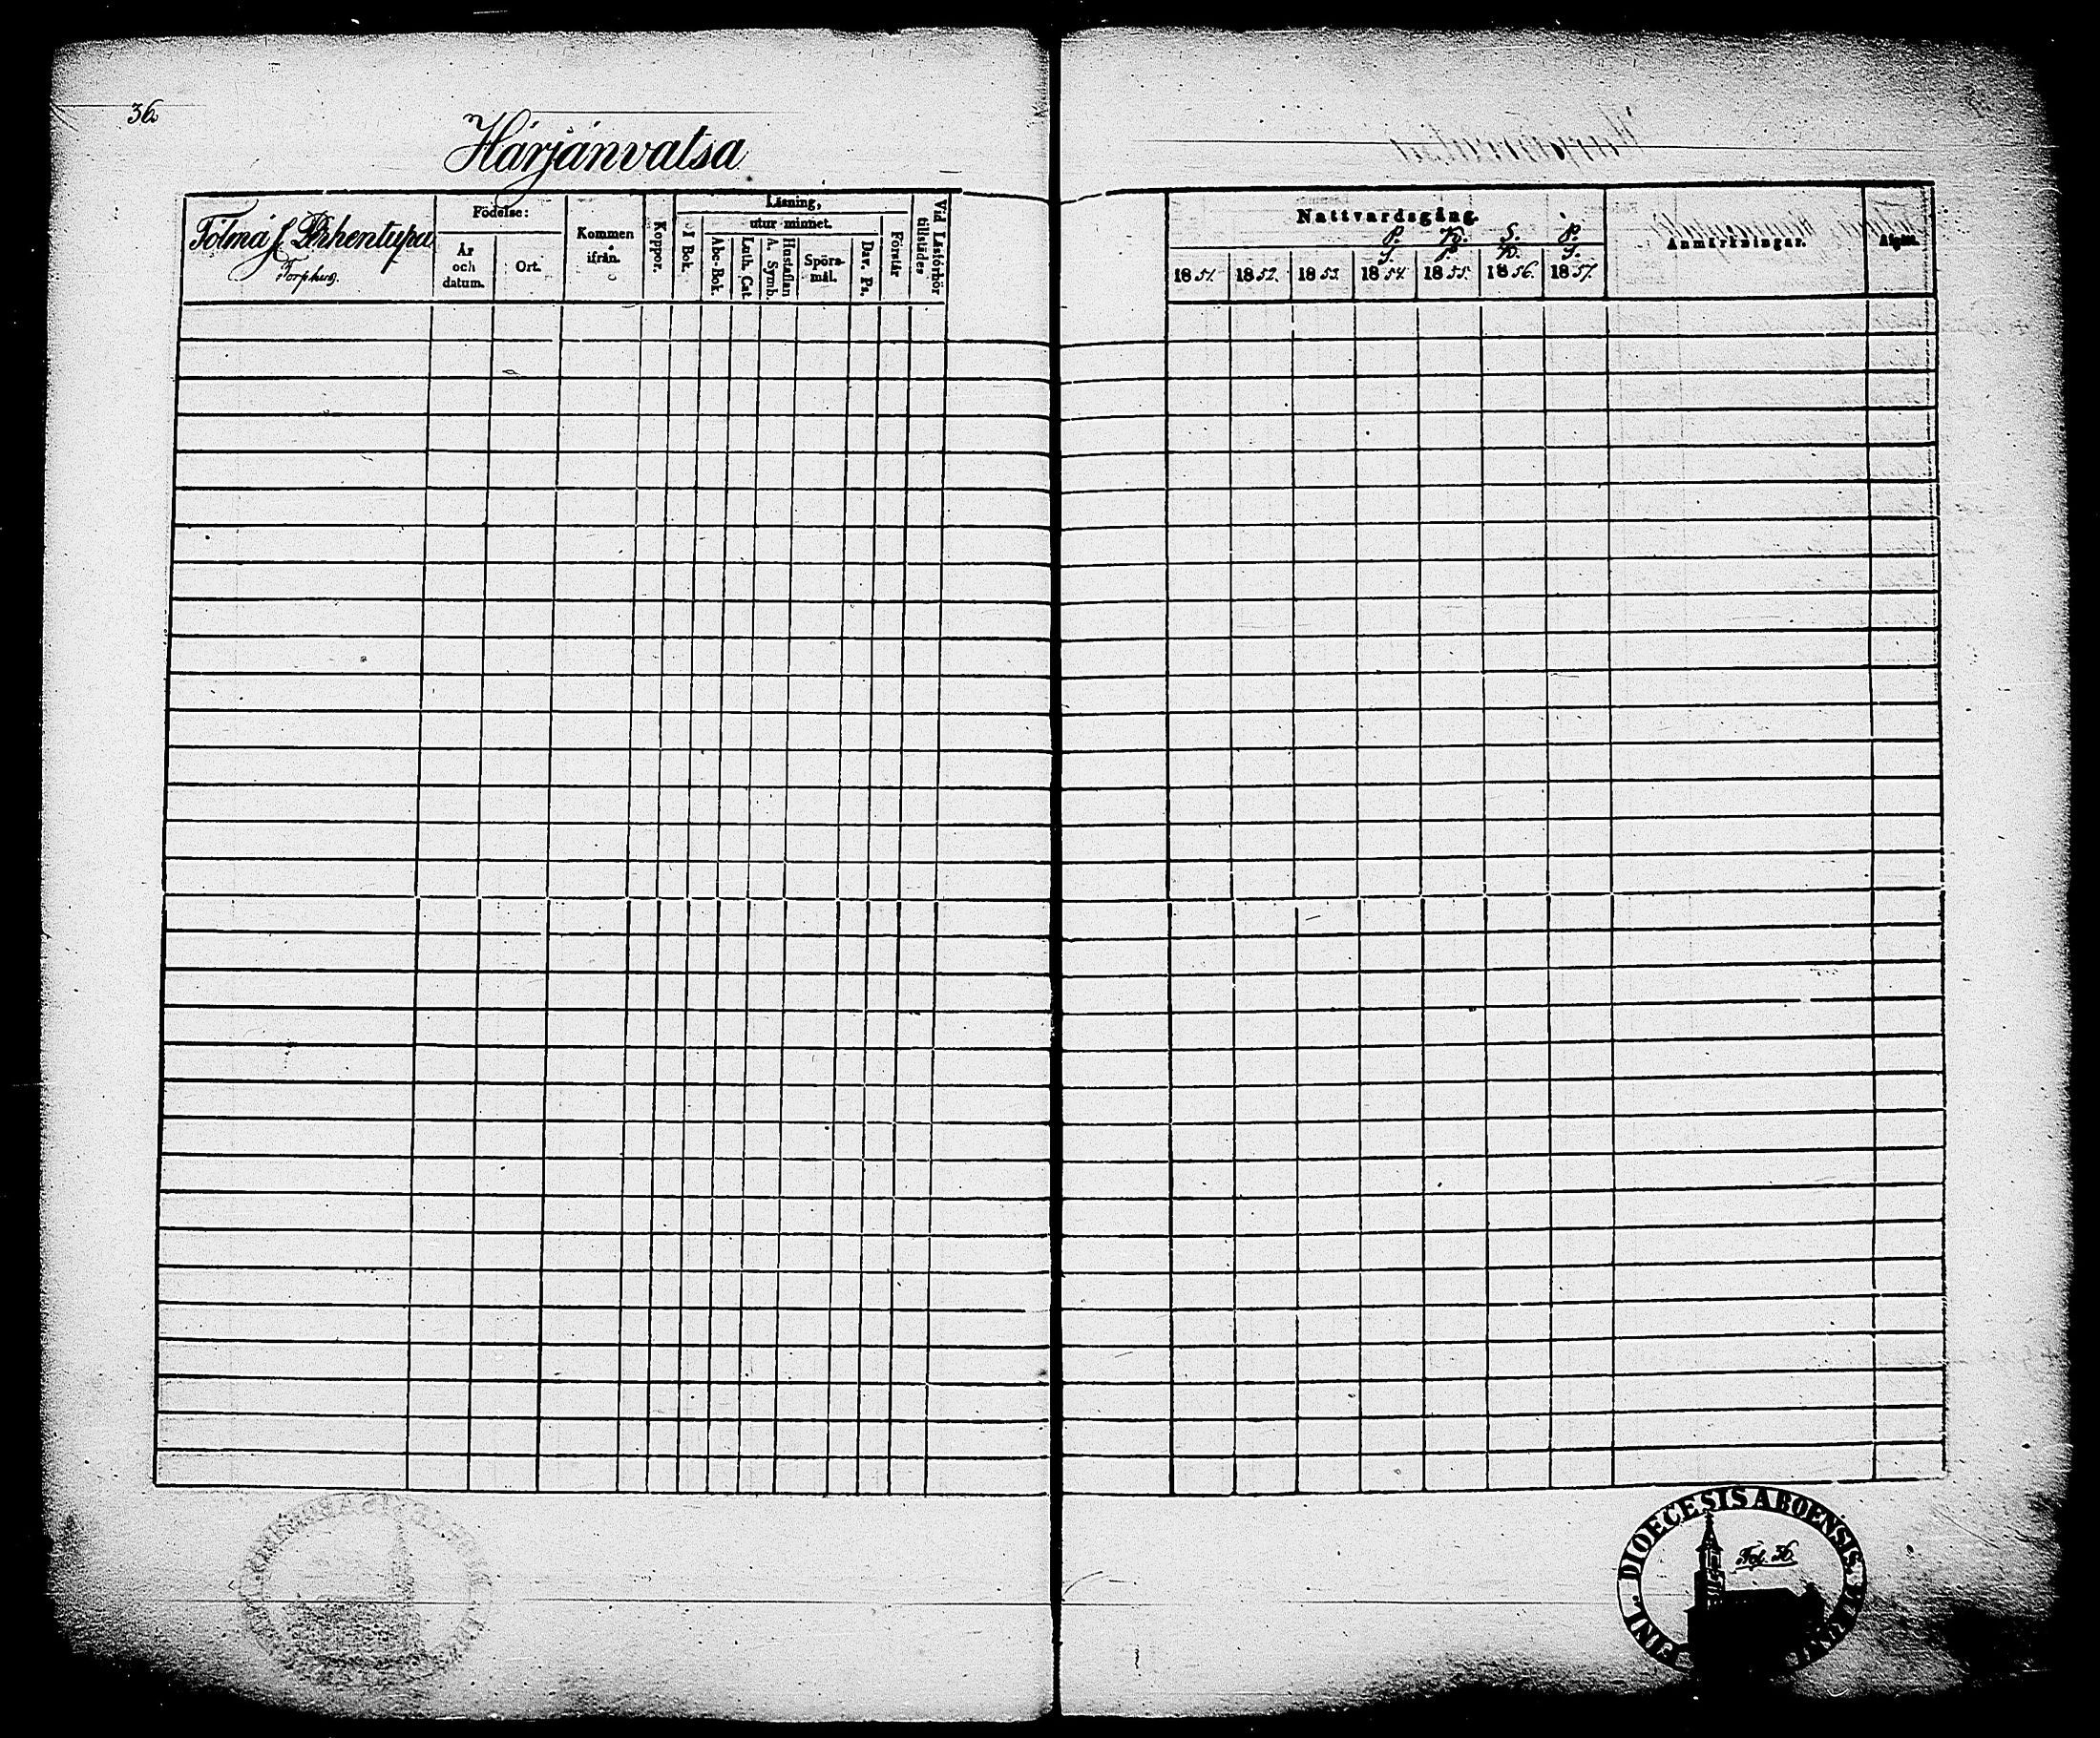 36
Härjänvatsa
Tölmä f. Perhentupa
Torphus.
Födelse:
År och datum.
Ort.
Kommen ifrån.
Koppor.
Läsning,
I Bok.
utur minnet.
Abc-Bok.
Luth. Cat.
Hustaflan A. Symb.
Spörsmål.
Dav. Ps.
Förstår
Vid Läsförhör tillstädes
Nattvardsgång.
P. S. P.
1851. 1852. 1853. 1854. 1855. 1856. 1857.
Anmärkningar.
Afgått.
DIOECESIS ABOENSIS.
Fol. 36.